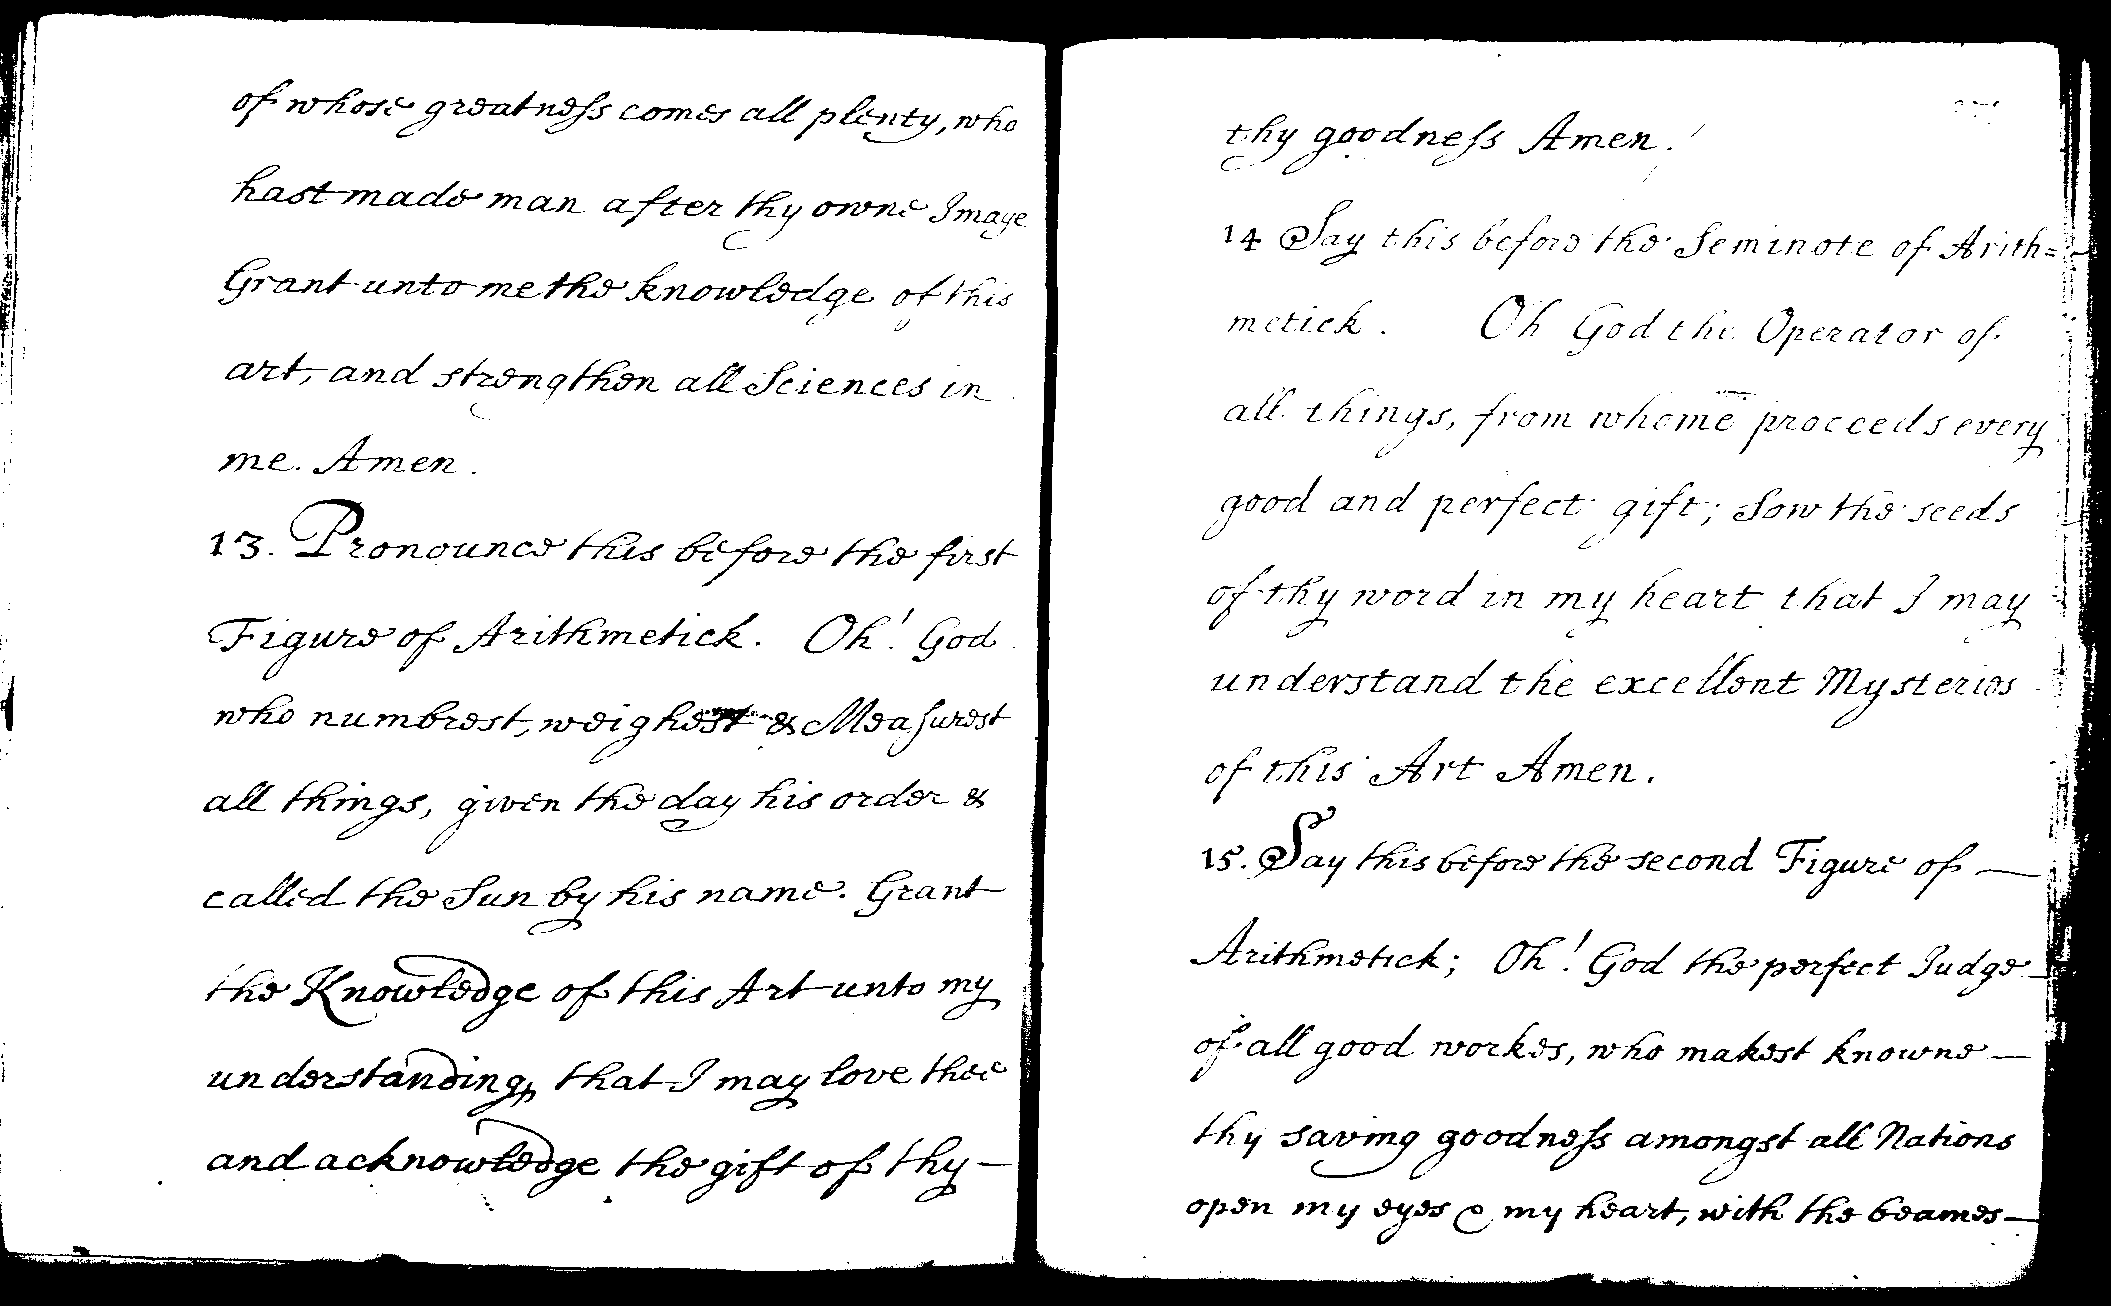 of whose greatneſs comes all plenty, who
hast made man after thy owne Image
Grant unto me the knowledge of this
art, and strengthen all Sciences in
me. Amen.
13. Pronounce this before the first
Figure of Arithmetick. Oh! God
who numbrest, weighest & Meaſurest
all things, given the day his order &
called the Sun by his name. Grant
the Knowledge of this Art unto my
understanding, that I may love thee
and acknowledge the gift of thy —
thy goodneſs Amen.
14 Say this before the Seminote of Arith=
metick. Oh God the Operator of
all things, from whome proceeds every
good and perfect gift; Sow the seeds
of thy word in my heart that I may
understand the excellent Mysteries
of this Art Amen.
15. Say this before the second Figure of —
Arithmetick; Oh! God the perfect Judge
of all good workes, who makest knowne —
thy saving goodneſs amongst all Nations
open my eyes & my heart, with the beames —